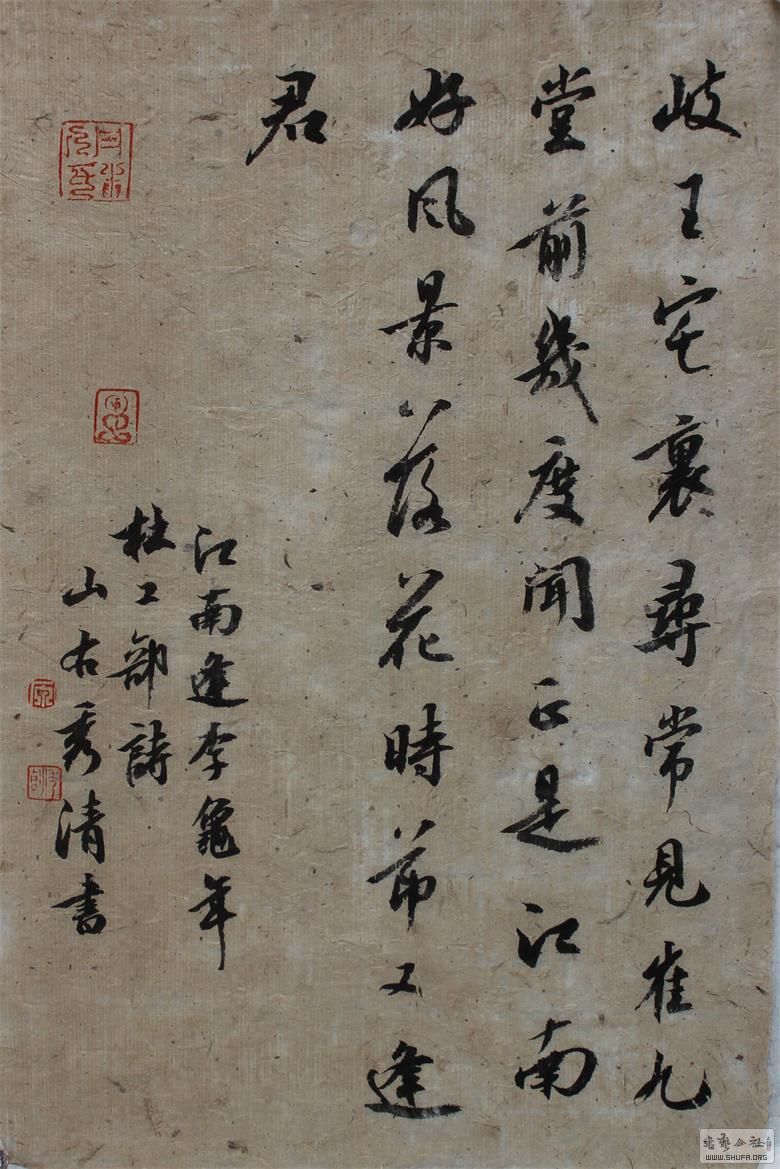 岐王宅裏尋常見崔九
堂前幾度聞正是江南
好風景落花時節又逢
君
江南逢李龜年
杜工部詩
山右秀清書
WWW.SHUFA.ORG